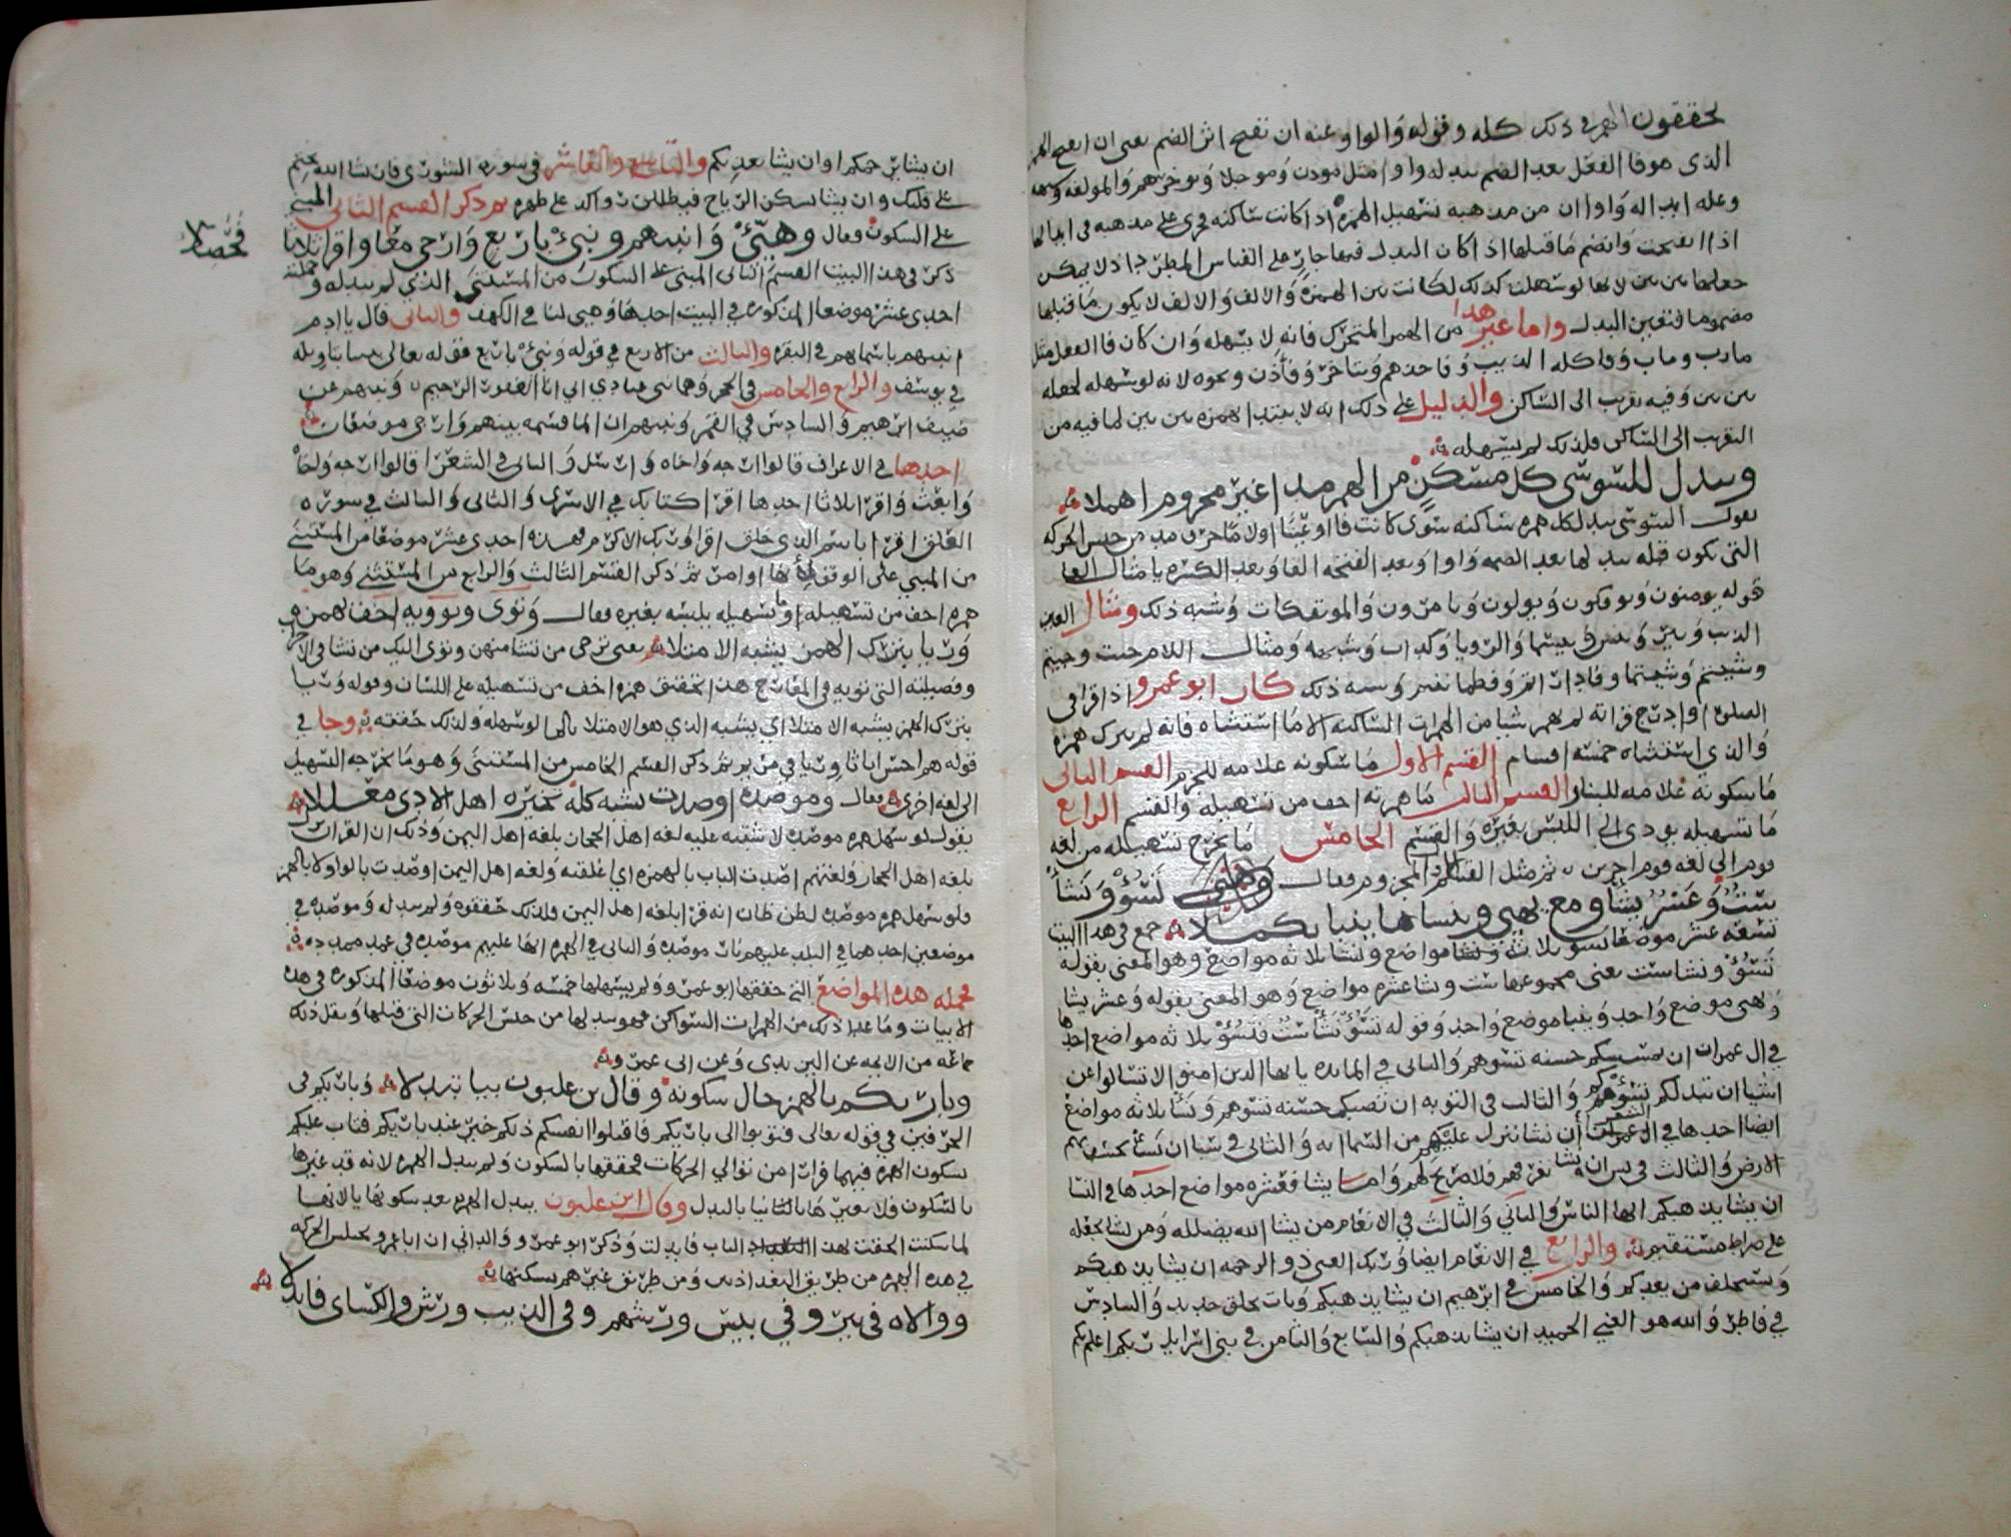 يحققون الهمز في ذلك كله وقوله والواو عنه ان تفتح اثر الضم يعني ان انفتح الهمز
الذي هو فا الفعل بعد الضم يبدله واوا مثل يودن وموجلا ويوخرهم والمولفه وشبهه
وعله ابداله واوا ان من مذهبه تسهيل الهمزه اذا كانت ساكنه فجرى على مذهبه في ابدالها
اذا انفتحت وانضم ما قبلها اذ كان البدل فيها جار على القياس المطرد اذ لا يمكن
جعلها بين بين لانها لو سهلت كذلك لكانت بين الهمزه والالف والالف لا يكون ما قبلها
مضموما فتعين البدل واما غير هذا من الهمز المتحرك فانه لا يسهله وان كان فا الفعل مثل
مارب وماب وفاكله الذيب وتاخر وفاذن ونحوه لانه لو سهله لجعله
بين بين وفيه تقرب الى الساكن والدليل على ذلك انه لا يبتدا بهمزه بين بين لما فيه من
التقرب الى الساكن فلذلك لم يسهله
ويبدل للسوسي كل مسكن من الهمز مدا غير مجزوم اهملا
يقول السوسي يبدل كل همزه ساكنه سوى كانت فا او عينا او لاما حرف مد من جنس الحركه
التي تكون قبله يبدلها بعد الضمه واوا وبعد الفتحه الفا وبعد الكسره يا مثال الفا
قوله يومنون ويوفكون ويولون ويامرون والموتفكات وشبه ذلك ومثال العين
الذيب وبير وبيس وبيسما والرويا وكداب وشبهه ومثال اللام جيت وجيتم
وشيتم وشيتما وفاداراتم وشبه ذلك كان ابو عمرو اذا قرا في
الصلوه او ادرج قراته لم يهمز شيا من الهمزات الساكنه الا ما استثناه فانه لم يترك همزه
والذي استثناه خمسه اقسام القسم الاول ما سكونه علامه للجزم القسم الثاني
ما سكونه علامه للبنا القسم الثالث ما همزته اخف من تسهيله والقسم الرابع
ما تسهيله يودي الى اللبس بغيره والقسم الخامس ما يخرج تسهيله من لغه
قوم الى لغه قوم اخرين ثم مثل القسم الاول المجزوم فقال تسؤ ونشا
ست وعشر يشا ومع يهيئ وننساها ينبا تكملا جمع في هذا البيت
تسعه عشر موضعا تسؤ ثلاث ونشا ثلاثه مواضع وهو المعنى بقوله
تسؤ ونشا ست يعني مجموعها ست ويشا عشره مواضع وهو المعنى بقوله وعشر يشا
ويهيئ موضع واحد وينبا موضع واحد وقوله تسؤ نشا ست فتسؤ ثلاثه مواضع احدها
في ال عمران ان تمسسكم حسنه تسوهم والثاني في المايده يا ايها الذين امنوا لا تسالوا عن
اشيا ان تبد لكم تسؤكم والثالث في التوبه ان تصبك حسنه تسوهم ونشا ثلاثه مواضع
ايضا احدها في الشعرا ان نشا ننزل عليهم من السما ايه والثاني في سبا ان نشا نخسف بهم
الارض والثالث في يس ان نشا نغرقهم فلا صريخ لهم واما يشا فعشره مواضع احدها في النسا
ان يشا يذهبكم ايها الناس والثاني والثالث في الانعام من يشا الله يضلله ومن يشا يجعله
على صراط مستقيم والرابع في الانعام ايضا وربك الغني ذو الرحمه ان يشا يذهبكم
ويستخلف من بعدكم والخامس في ابرهيم ان يشا يذهبكم ويات بخلق جديد والسادس
في فاطر والله هو الغني الحميد ان يشا يذهبكم والسابع والثامن في بني اسرايل ربكم اعلم بكم
ان يشا يرحمكم او ان يشا يعذبكم والتاسع والعاشر في سوره الشورى فان يشا الله يختم
على قلبك وان يشا يسكن الرياح فيظللن رواكد على ظهره ثم ذكر القسم الثاني المبني
على السكون فقال وهيئ وانبيهم ونبئ باربع وارجي معا واقرا ثلاثا
فحصلا
ذكر في هذا البيت القسم الثاني المبني على السكون من المستثنى الذي لم يبدله وجملته
احدى عشر موضعا المذكوره في البيت احدها وهيى لنا في الكهف والثاني قال يا ادم
انبيهم باسمايهم في البقره والثالث من الاربع في قوله ونبئ باربع قوله تعالى نبينا بتاويله
في يوسف والرابع والخامس في الحجر وهما نبي عبادي اني انا الغفور الرحيم ونبيهم عن
ضيف ابرهيم والسادس في القمر ونبيهم ان الما قسمه بينهم وارجي موضعان
احدها في الاعراف قالوا ارجه واخاه وارسل والثاني في الشعرا قالوا ارجه واخاه
وابعث واقرا ثلاثا احدها اقرا كتابك في الاسرى والثاني والثالث في سوره
العلق اقرا باسم ربك الذي خلق اقرا وربك الاكرم فهذه احدى عشر موضعا من المستثنى
من المبني على الوقف ثم ذكر القسم الثالث والرابع من المستثنى وهو ما
همزه اخف من تسهيله وما تسهيله يلبسه بغيره فقال وتؤوي وتؤويه اخف بهمزه
وريا بترك الهمز يشبه الامتلا يعني ترجي من تشا منهن وتؤوي اليك من تشا في الاحزاب
وفصيلته التي تؤويه في المعارج هذا تحقيق همزه اخف من تسهيله على اللسان وقوله وريا
بترك الهمز يشبه الامتلا اي يشبه الذي هو الامتلا بالما لو سهله ولذلك حققه وجا في
قوله هم احسن اثاثا وريا في مريم ثم ذكر القسم الخامس من المستثنى وهو ما يخرجه التسهيل
الى لغه اخرى فقال وموصده اوصدت يشبه كله تخيره اهل الادى معللا
يقول لو سهل همزه موصده لاشتبه عليه لغه اهل الحجاز بلغه اهل اليمن وذلك ان القران
بلغه اهل الحجاز ولغتهم اصدت الباب بالهمزه اي اغلقته ولغه اهل اليمن اوصدت بالواو لا بالهمز
فلو سهل همزه موصده لظن ظان انه قرا بلغه اهل اليمن فلذلك حققوه ولم يبدله وموصده في
موضعين احدهما في البلد عليهم نار موصده والثاني في الهمزه انها عليهم موصده في عمد ممدده
فجمله هذه المواضع التي حققها ابو عمرو ولم يسهلها خمسه وثلاثون موضعا المذكوره في هذه
الابيات وما عدا ذلك من الهمزات السواكن فهو يبدلها من جنس الحركات التي قبلها ونقل ذلك
جماعه من الايمه عن اليزيدي وعن ابي عمرو
وباريكم بالهمز حال سكونه وقال بن غلبون بيا تبدلا وباريكم في
الحرفين في قوله تعالى فتوبوا الى باريكم فاقتلوا انفسكم ذلكم خير عند باريكم فتاب عليكم
سكون الهمزه فيهما فرارا من توالي الحركات فحققها بالسكون ولم يبدل الهمزه لانه قد غيرها
بالسكون فلا يغيرها ثانيا بالبدل وقال ابن غلبون يبدل الهمزه بعد سكونها يا لانها
لما سكنت الحقت بهذا الباب فابدلت وذكر ابو عمرو الداني ان ابا عمرو يختلس الحركه
في هذه الهمزه من طريق البغداديين ومن طريق غيرهم يسكنها
ووالاه في بير وفي بيس ورشهم وفي الذيب ورش والكساى فابدلا